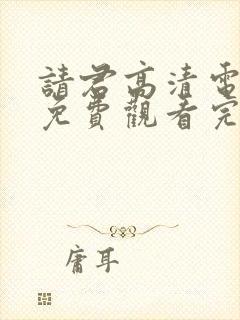 請君高清電
免費觀看完
庸耳